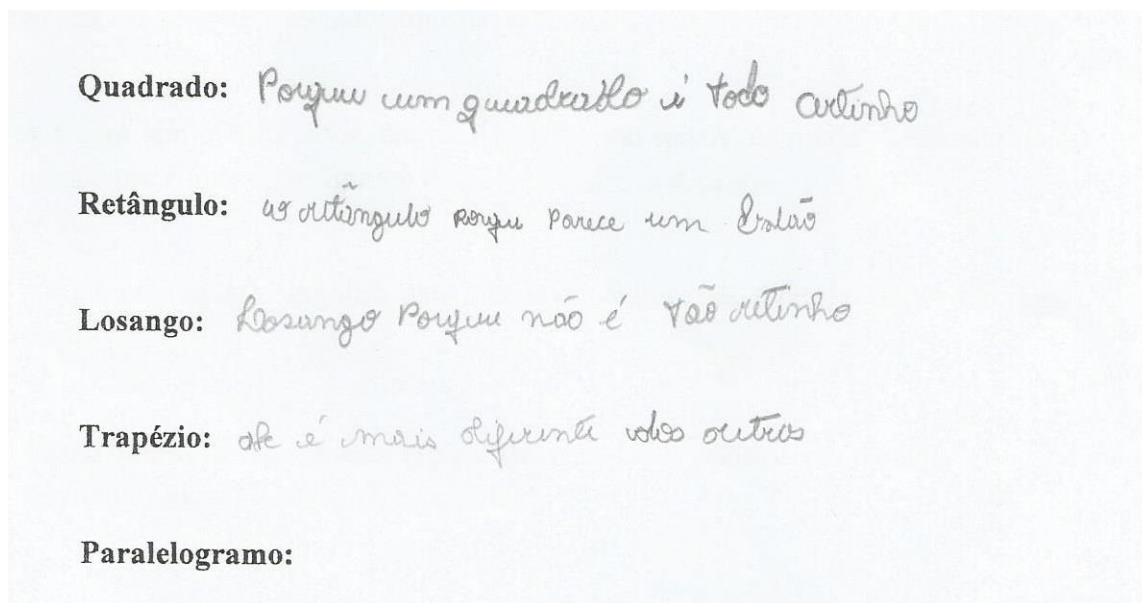 Quadrado: Porque um quadrado é todo certinho
Retângulo: os retângulo porque parece um
Losango: Losango Porque não é tão retinho
Trapézio: ele é mais diferente dos outros
Paralelogramo: